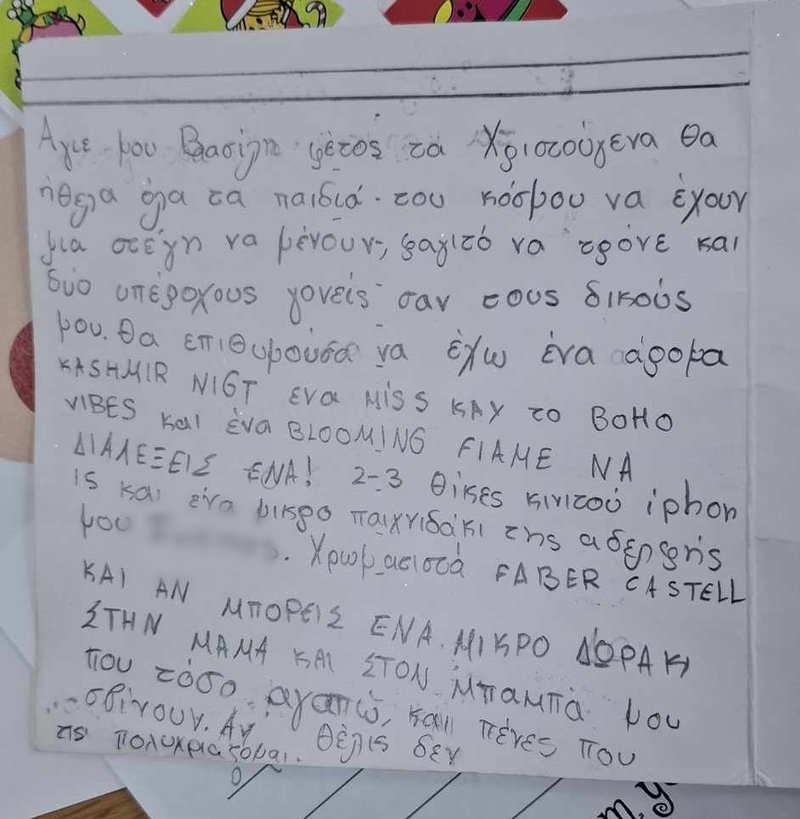 Άγιε μου Βασίλη φέτος τα Χριστούγενα θα
ήθελα όλα τα παιδιά του κόσμου να έχουν
μια στέγη να μένουν, φαγιτό να τρόνε και
δύο υπέροχους γονείς σαν τους δικούς
μου. Θα επιθυμούσα να έχω ένα άρομα
KASHMIR NIGT ενα MISS KAY το BOHO
VIBES και ένα BLOOMING FIAME ΝΑ
ΔΙΑΛΕΞΕΙΣ ΕΝΑ! 2-3 θίκες κινιτού iphon
15 και ένα μικρο παιχνιδάκι της αδερφής
μου . Χρωμασιστά FABER CASTELL
ΚΑΙ ΑΝ ΜΠΟΡΕΙΣ ΕΝΑ ΜΙΚΡΟ ΔΩΡΑΚΙ
ΣΤΗΝ ΜΑΜΑ ΚΑΙ ΣΤΟΝ ΜΠΑΜΠΑ μου
που τόσο αγαπώ, και πένες που
σβίνουν. Αν θέλις δεν
τις πολυχριαζομαι.